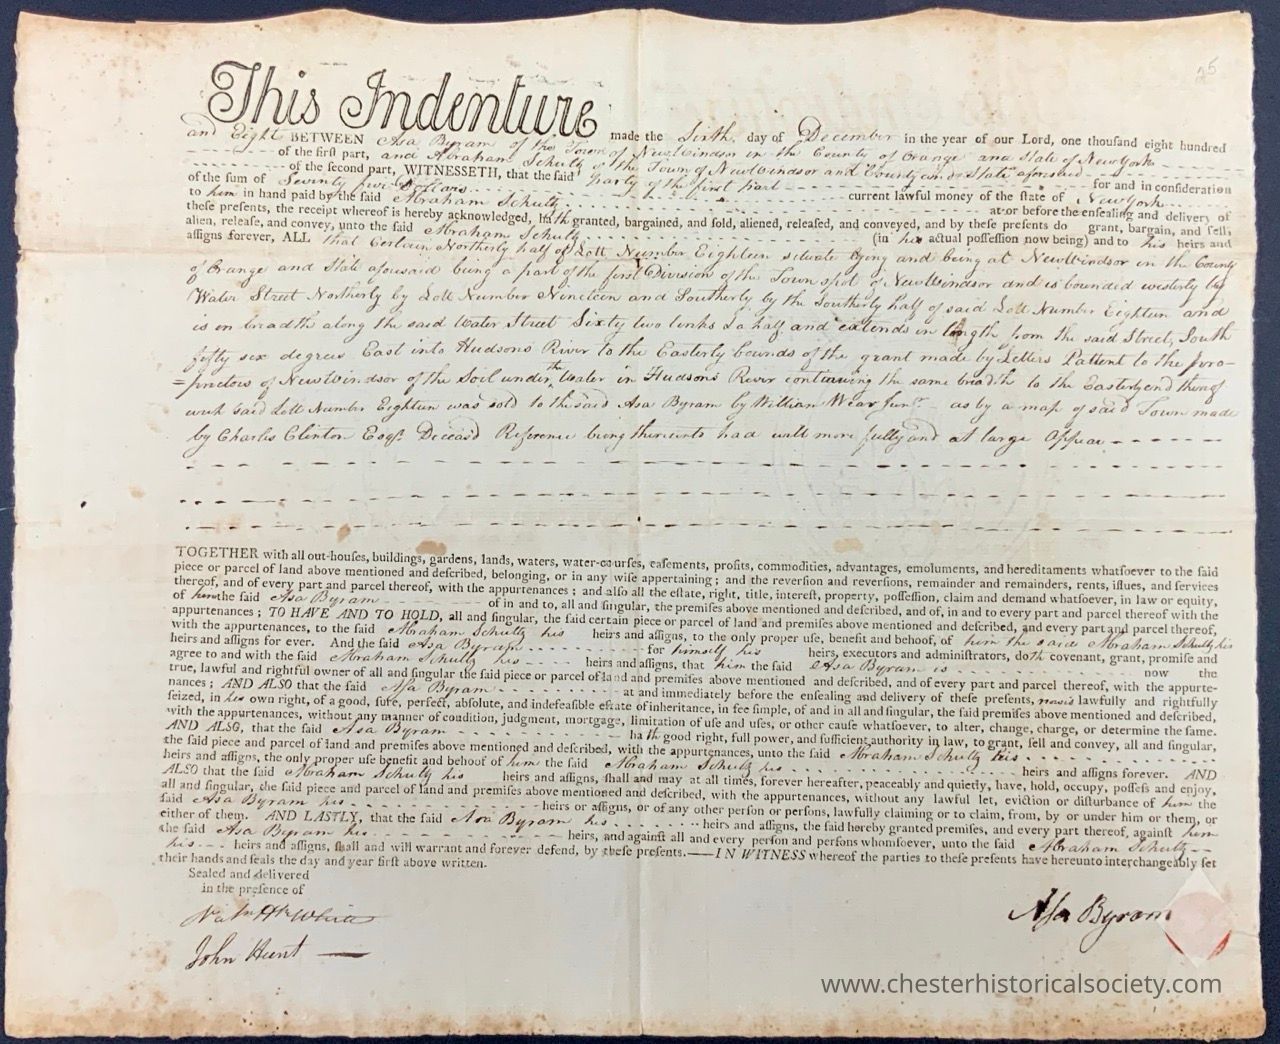 25
This Indenture made the Sixth day of December in the year of our Lord, one thousand eight hundred
and Eight BETWEEN Asa Byram of the Town of NewWindsor in the County of Orange and State of NewYork
of the first part, and Abraham Schultz of the Town of NewWindsor and County and State aforesaid
of the second part, WITNESSETH, that the said party of the first part for and in consideration
of the sum of Seventy five Dollars current lawful money of the state of NewYork
to him in hand paid by the said Abraham Schultz at or before the ensealing and delivery of
these presents, the receipt whereof is hereby acknowledged, hath granted, bargained, and sold, aliened, released, and conveyed, and by these presents do grant, bargain, and sell,
alien, release, and convey, unto the said Abraham Schultz (in his actual possession now being) and to his heirs and
assigns forever, ALL that Certain Northerly half of Lott Number Eighteen situate lying and being at NewWindsor in the County
of Orange and State aforesaid being a part of the first Division of the Town spot of NewWindsor and is bounded westerly by
Water Street Northerly by Lott Number Nineteen and Southerly by the Southerly half of said Lott Number Eighteen and
is in breadth along the said Water Street Sixty two links & a half and extends in length from the said Street, South
fifty six degrees East into Hudsons River to the Easterly bounds of the grant made by Letters Pattent to the pro-
=prietors of NewWindsor of the Soil under the Water in Hudsons River continuing the same breadth to the Easterly end thereof
which said Lott Number Eighteen was sold to the said Asa Byram by William Wear junr as by a map of said Town made
by Charles Clinton Esqr. Deceasd Reference being thereunto had will more fully and at large Appear
TOGETHER with all out-houses, buildings, gardens, lands, waters, water-courses, easements, profits, commodities, advantages, emoluments, and hereditaments whatsoever to the said
piece or parcel of land above mentioned and described, belonging, or in any wise appertaining; and the reversion and reversions, remainder and remainders, rents, issues, and services
thereof, and of every part and parcel thereof, with the appurtenances; and also all the estate, right, title, interest, property, possession, claim and demand whatsoever, in law or equity,
of him the said Asa Byram of in and to, all and singular, the premises above mentioned and described, and of, in and to every part and parcel thereof with the
appurtenances; TO HAVE AND TO HOLD, all and singular, the said certain piece or parcel of land and premises above mentioned and described, and every part and parcel thereof,
with the appurtenances, to the said Abraham Schultz his heirs and assigns, to the only proper use, benefit and behoof, of him the said Abraham Schultz his
heirs and assigns for ever. And the said Asa Byram for himself his heirs, executors and administrators, doth covenant, grant, promise and
agree to and with the said Abraham Schultz his heirs and assigns, that him the said Asa Byram is now the
true, lawful and rightful owner of all and singular the said piece or parcel of land and premises above mentioned and described, and of every part and parcel thereof, with the appurte-
nances; AND ALSO that the said Asa Byram at and immediately before the ensealing and delivery of these presents, now is lawfully and rightfully
seized, in his own right, of a good, sure, perfect, absolute, and indefeasible estate of inheritance, in fee simple, of and in all and singular, the said premises above mentioned and described,
with the appurtenances, without any manner of condition, judgment, mortgage, limitation of use and uses, or other cause whatsoever, to alter, change, charge, or determine the same.
AND ALSO, that the said Asa Byram hath good right, full power, and sufficient authority in law, to grant, sell and convey, all and singular,
the said piece and parcel of land and premises above mentioned and described, with the appurtenances, unto the said Abraham Schultz his
heirs and assigns, the only proper use benefit and behoof of him the said Abraham Schultz his heirs and assigns forever. AND
ALSO that the said Abraham Schultz his heirs and assigns, shall and may at all times, forever hereafter, peaceably and quietly, have, hold, occupy, possess and enjoy,
all and singular, the said piece and parcel of land and premises above mentioned and described, with the appurtenances, without any lawful let, eviction or disturbance of him the
said Asa Byram his heirs or assigns, or of any other person or persons, lawfully claiming or to claim, from, by or under him or them, or
either of them. AND LASTLY, that the said Asa Byram his heirs and assigns, the said hereby granted premises, and every part thereof, against him
the said Asa Byram his heirs, and against all and every person and persons whomsoever, unto the said Abraham Schultz
his heirs and assigns, shall and will warrant and forever defend, by these presents.——IN WITNESS whereof the parties to these presents have hereunto interchangeably set
their hands and seals the day and year first above written.
Sealed and delivered
in the presence of
White
John Hunt
Asa Byram
www.chesterhistoricalsociety.com